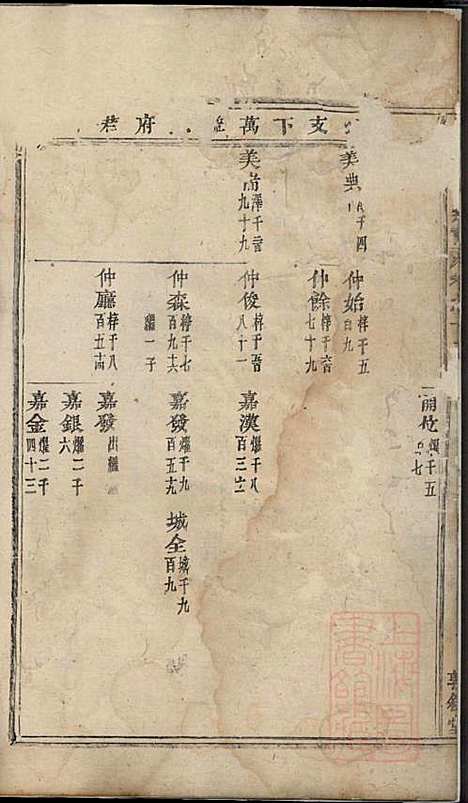 支下萬 府君
開 燿千五
七
美典 千四
美尚 澤千二百九十九
仲始 梓千五百九
仲餘 梓千六百七十九
仲俊 梓千五百八十一
仲森 梓千七百九十六
繼一子
仲廳 梓千八百五十六
嘉漢 燿千八百三十六
嘉發 燿千九百五十九
嘉發 出繼
嘉銀 燿二千六
嘉金 燿二千四十三
城全 城千九百九
上海圖書館藏
敦敘堂